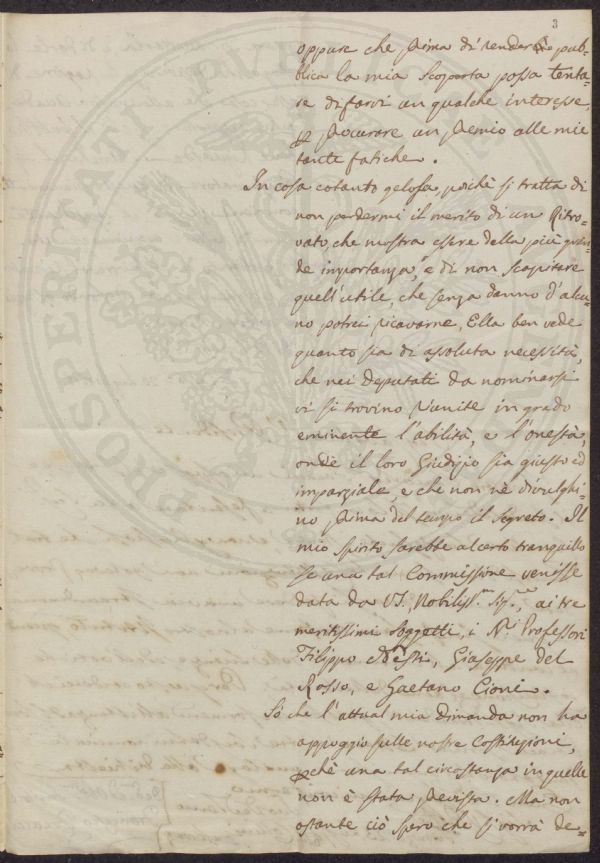 3
oppure che prima di renderla pub-
blica la mia scoperta possa tenta-
re di farvi un qualche interesse,
e procurare un premio alle mie
tante fatiche.
In cosa cotanto gelosa, poichè si tratta di
non perdermi il merito di un Ritro-
vato, che mostra essere della più gran-
de importanza, e di non scapitare
quell'utile, che senza danno d'alcu-
no potrei ricavarne, Ella ben vede
quanto sia di assoluta necessità,
che nei deputati da nominarsi
vi si trovino riunite in grado
eminente l'abilità, e l'onestà,
onde il loro Giudizio sia giusto ed
imparziale, e che non ne divulghi-
no prima del tempo il segreto. Il
mio spirito sarebbe alcerto tranquillo
se una tal Commissione venisse
data da VS. Nobiliss.ma Sig.re, ai tre
meritissimi soggetti, i Professori
Filippo Nesti, Giuseppe del
Rosso, e Gaetano Cioni.
Sò che l'attual mia dimanda non ha
appoggio sulle nostre Costituzioni,
perchè una tal circostanza in quelle
non è stata prevista. Ma non
ostante ciò spero che si vorrà de-
PROSPERITATI PUBLICAE